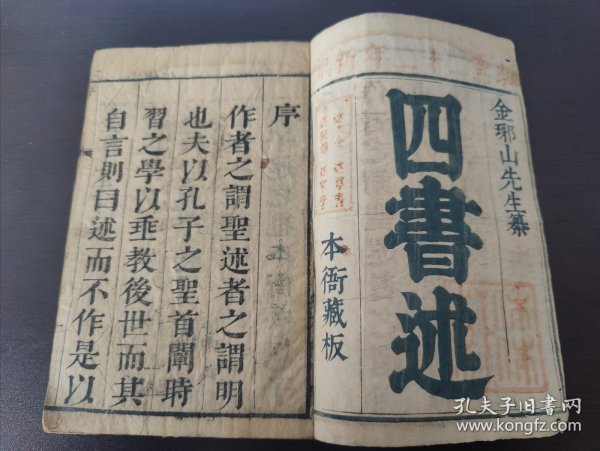 金琊山先生纂
四書述
本衙藏板
序
作者之謂聖述者之謂明
也夫以孔子之聖首闡時
習之學以垂教後世而其
自言則曰述而不作是以
孔夫子旧书网
kongfz.com